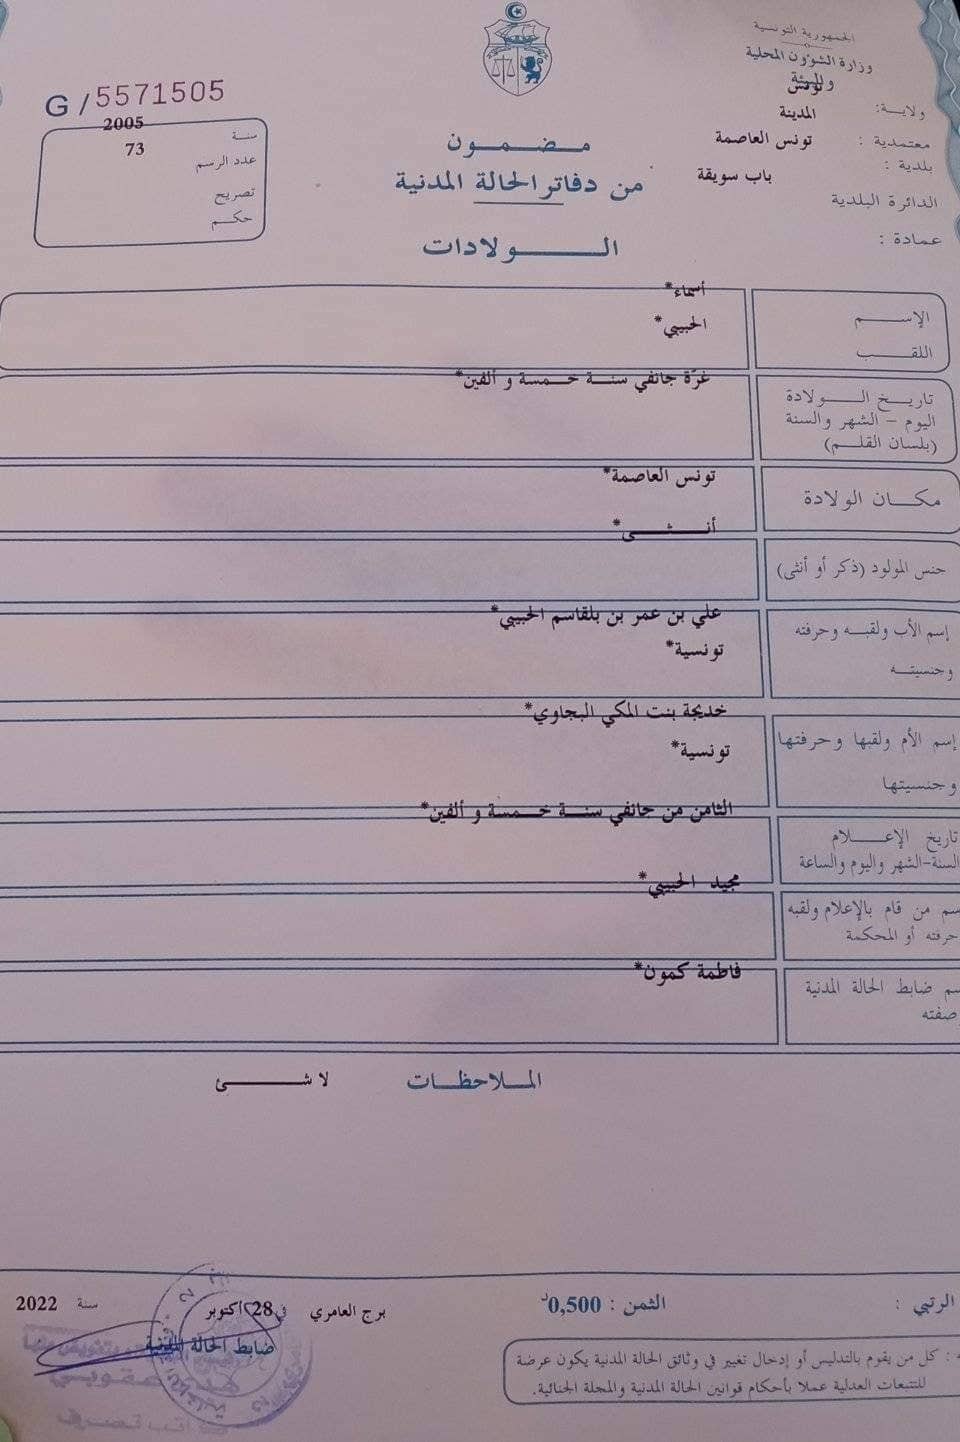 الجمهورية التونسية
وزارة الشؤون المحلية
والبيئة
ولاية: تونس
المدينة
معتمدية : تونس العاصمة
بلدية :
باب سويقة
الدائرة البلدية
عمادة :
G / 5571505
سنة 2005
عدد الرسم 73
تصريح
حكم
مضمون
من دفاتر الحالة المدنية
الولادات
أسماء*
الإسم
الحبيبي*
اللقب
غرّة جانفي سنة خمسة و ألفين*
تاريخ الولادة
اليوم - الشهر والسنة
(بلسان القلم)
تونس العاصمة*
مكان الولادة
أنثى*
جنس المولود (ذكر أو أنثى)
علي بن عمر بن بلقاسم الحبيبي*
إسم الأب ولقبه وحرفته
تونسية*
وجنسيته
خديجة بنت المكي البجاوي*
إسم الأم ولقبها وحرفتها
تونسية*
وجنسيتها
الثامن من جانفي سنة خمسة و ألفين*
تاريخ الإعلام
السنة-الشهر واليوم والساعة
مجيد الحبيبي*
سم من قام بالإعلام ولقبه
حرفته أو المحكمة
فاطمة كمون*
سم ضابط الحالة المدنية
صفته
الملاحظات لا شئ
الرتبي :
الثمن : 0,500د
برج العامري في 28 اكتوبر سنة 2022
ضابط الحالة المدنية
: كل من يقوم بالتدليس أو إدخال تغيير في وثائق الحالة المدنية يكون عرضة
للتتبعات العدلية عملا بأحكام قوانين الحالة المدنية والمجلة الجنائية.